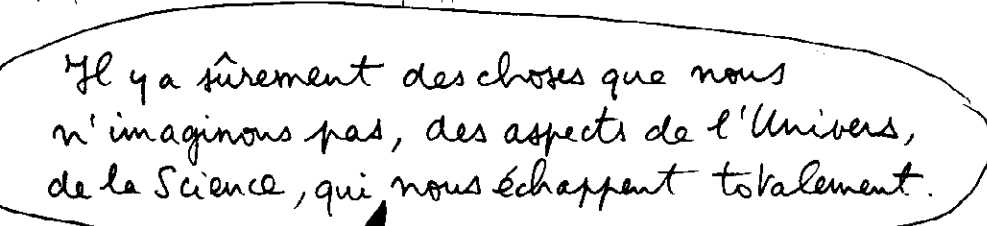 Il y a sûrement des choses que nous
n'imaginons pas, des aspects de l'Univers,
de la Science, qui nous échappent totalement.